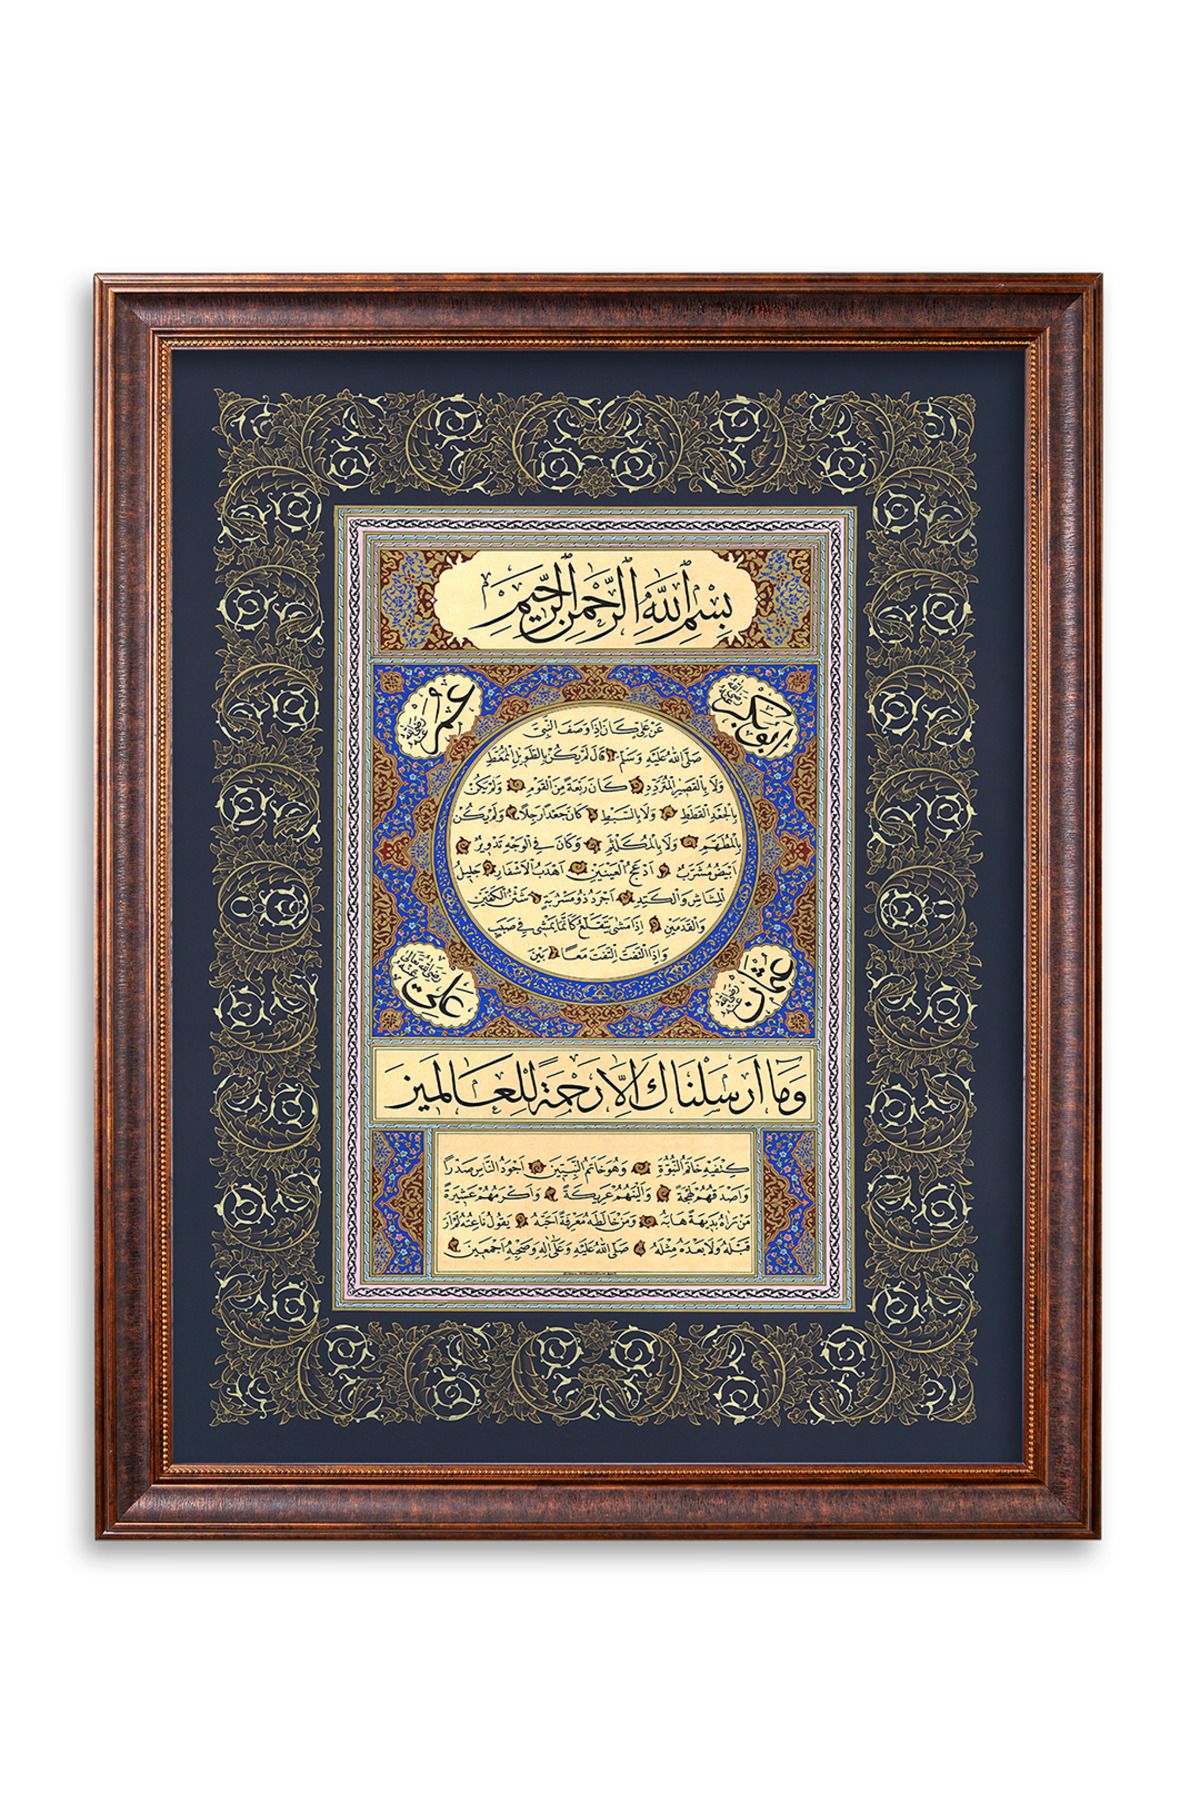 بِسْمِ اللّٰهِ الرَّحْمٰنِ الرَّحِيمِ
ابوبكر رضي الله عنه
عمر رضي الله عنه
عَنْ عَلِيٍّ كَانَ اِذَا وَصَفَ النَّبِيَّ
صَلَّى اللهُ عَلَيْهِ وَسَلَّمَ قَالَ لَمْ يَكُنْ بِالطَّوِيلِ الْمُمَّغِطِ
وَلَا بِالْقَصِيرِ الْمُتَرَدِّدِ كَانَ رَبْعَةً مِنَ الْقَوْمِ وَلَمْ يَكُنْ
بِالْجَعْدِ الْقَطَطِ وَلَا بِالسَّبِطِ كَانَ جَعْدًا رَجِلًا وَلَمْ يَكُنْ
بِالْمُطَهَّمِ وَلَا بِالْمُكَلْثَمِ وَكَانَ فِي الْوَجْهِ تَدْوِيرٌ
اَبْيَضُ مُشْرَبٌ اَدْعَجُ الْعَيْنَيْنِ اَهْدَبُ الْاَشْفَارِ جَلِيلُ
الْمُشَاشِ وَالْكَتَدِ اَجْرَدُ ذُو مَسْرُبَةٍ شَثْنُ الْكَفَّيْنِ
وَالْقَدَمَيْنِ اِذَا مَشٰى يَتَقَلَّعُ كَاَنَّمَا يَمْشِي فِي صَبَبٍ
وَاِذَا الْتَفَتَ الْتَفَتَ مَعًا بَيْنَ
عثمان رضي الله عنه
علي رضي الله تعالى عنه
وَمَا اَرْسَلْنَاكَ اِلَّا رَحْمَةً لِلْعَالَمِينَ
كَتِفَيْهِ خَاتَمُ النُّبُوَّةِ وَهُوَ خَاتَمُ النَّبِيِّينَ اَجْوَدُ النَّاسِ صَدْرًا
وَاَصْدَقُهُمْ لَهْجَةً وَاَلْيَنُهُمْ عَرِيكَةً وَاَكْرَمُهُمْ عَشِيرَةً
مَنْ رَآهُ بَدِيهَةً هَابَهُ وَمَنْ خَالَطَهُ مَعْرِفَةً اَحَبَّهُ يَقُولُ نَاعِتُهُ لَمْ اَرَ
قَبْلَهُ وَلَا بَعْدَهُ مِثْلَهُ صَلَّى اللهُ عَلَيْهِ وَعَلٰى اٰلِهِ وَصَحْبِهِ اَجْمَعِينَ